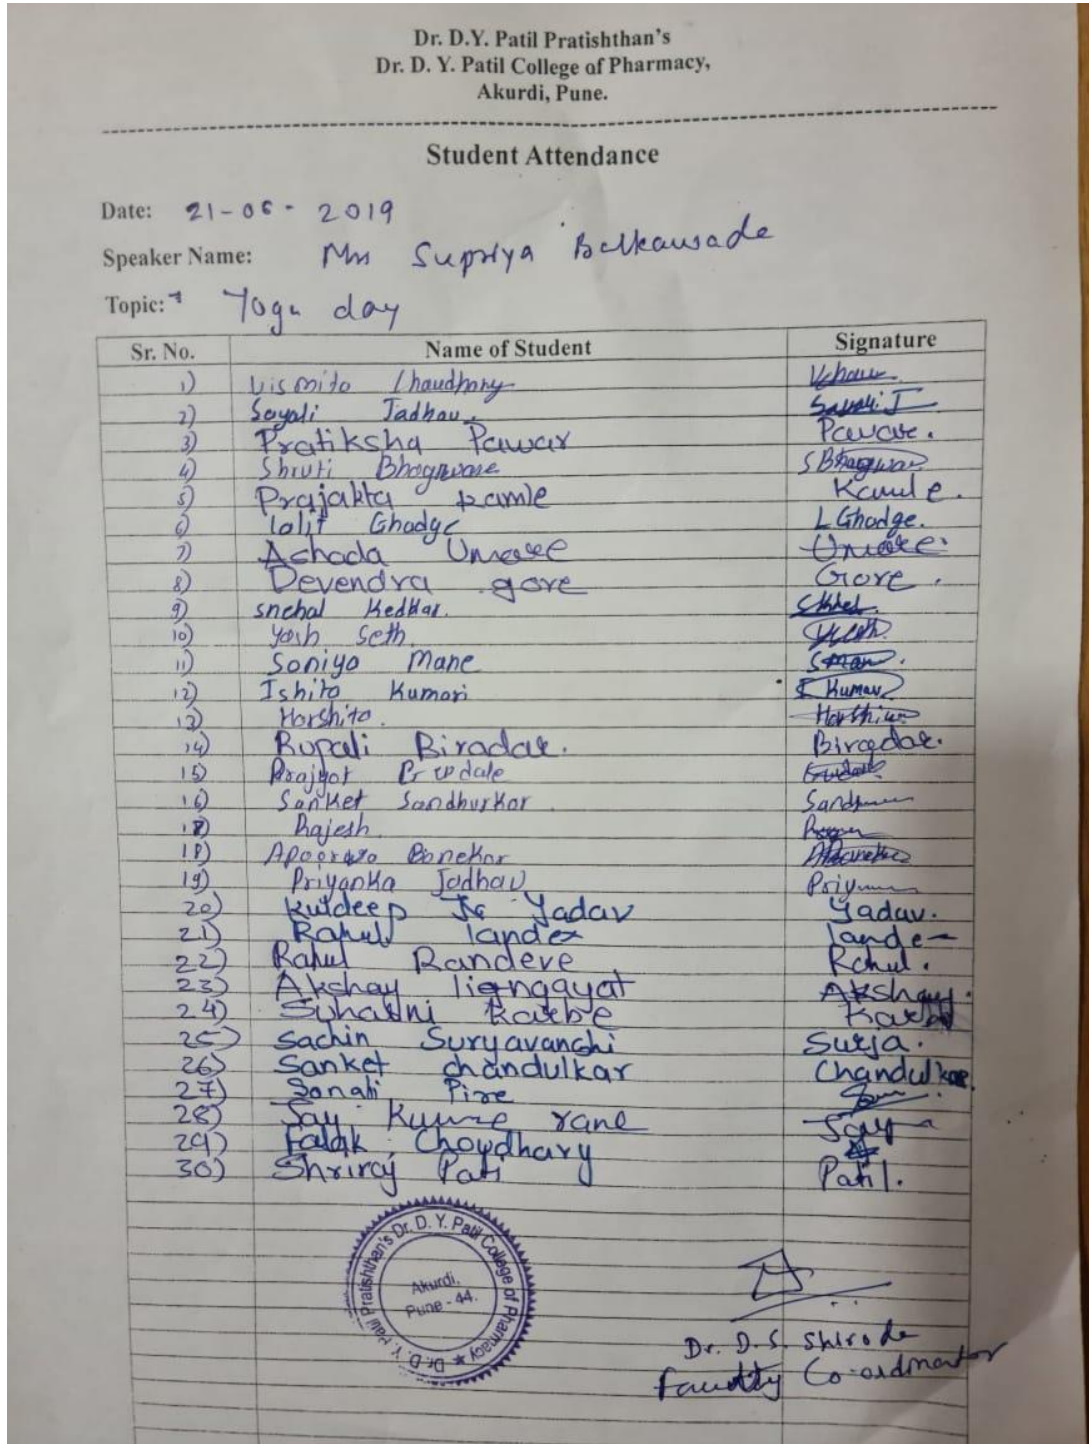 Dr. D.Y. Patil Pratishthan's
Dr. D. Y. Patil College of Pharmacy,
Akurdi, Pune.
Student Attendance
Date: 21-06-2019
Speaker Name: Mrs Supriya
Topic: Yoga day
Sr. No. Name of Student Signature
1) Vismita Chaudhary
2) Sayali Jadhav Sayali J
3) Pratiksha Pawar Pawar.
4) Shruti Bhagware S Bhagwar
5) Prajakta Kamle Kamle.
6) lalit Ghadge L Ghadge.
7) Ashada Umare Umare.
8) Devendra gore Gore.
9) snehal Kedkar.
10) Yash Seth
11) Soniya Mane S man
12) Ishita Kumari I Kumar
13) Harshita.
14) Rupali Biradar. Biradar.
15) Prajyot
16) Sanket Sandhurkar
17) Rajesh
18) Banekar
19) Priyanka Jadhav
20) Kuldeep Yadav Yadav.
21) Rahul lande
22) Rahul Randeve Rahul.
23) Akshay liengayat Akshay.
24) Suhasni Karbe
25) Sachin Suryavanshi Surja.
26) Sanket chandulkar Chandulkar.
27) Sonali Pire
28) Jay Kumar rane Jay
29) Falak Choydhary
30) Shriraj Pati Patil.
Dr. D. Y. Patil Pratishthan's Dr. D. Y. Patil College of Pharmacy
Akurdi,
Pune - 44.
Dr. D. S. Shirode
Faculty Co-ordinator